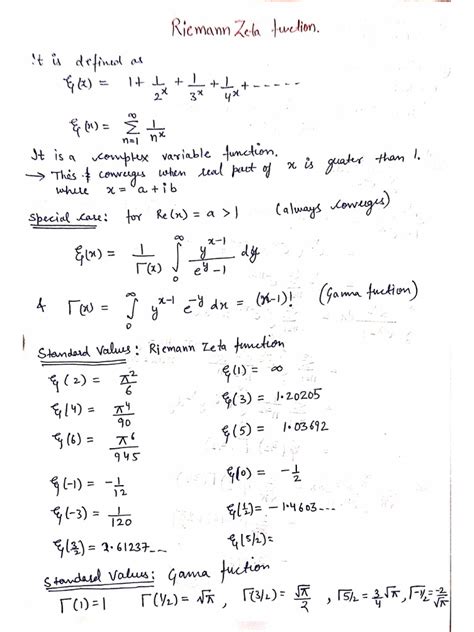 Riemann Zeta fuction.
It is defined as
ξ(x) = 1 + 1/2^x + 1/3^x + 1/4^x + ------
ξ(x) = ∑_{n=1}^{∞} 1/n^x
It is a complex variable function.
→ This f converges when real part of x is greater than 1.
where x = a + ib
Special case: for Re(x) = a > 1 (always converges)
ξ(x) = 1/Γ(x) ∫_0^∞ y^{x-1}/(e^y - 1) dy
& Γ(x) = ∫_0^∞ y^{x-1} e^{-y} dx = (x-1)! (Gama fuction)
Standard Values: Riemann Zeta function
ξ(2) = π^2/6 ξ(1) = ∞
ξ(4) = π^4/90 ξ(3) = 1.20205
ξ(6) = π^6/945 ξ(5) = 1.03692
ξ(-1) = -1/12 ξ(0) = -1/2
ξ(-3) = 1/120 ξ(1/2) = -1.4603...
ξ(3/2) = 2.61237... ξ(5/2) =
Standard Values: Gama fuction
Γ(1) = 1 Γ(1/2) = √π , Γ(3/2) = √π/2 , Γ5/2 = 3/4 √π, Γ-1/2 = -2/√π